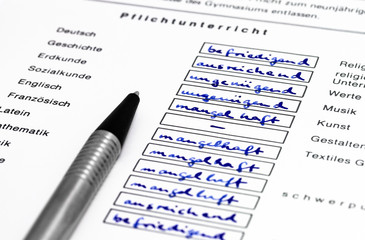 nicht zum neunjährigen
des Gymnasiums entlassen.
Pflichtunterricht
Deutsch
Geschichte
Erdkunde
Sozialkunde
Englisch
Französisch
Latein
Mathematik
befriedigend
ausreichend
ungenügend
ungenügend
mangelhaft
—
mangelhaft
mangelhaft
mangelhaft
mangelhaft
ausreichend
befriedigend
religi
Unter
Werte
Musik
Kunst
Gestalten
Textiles G
schwerpu